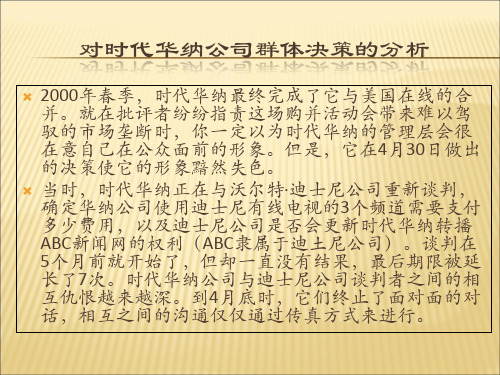 对时代华纳公司群体决策的分析
2000年春季，时代华纳最终完成了它与美国在线的合
并。就在批评者纷纷指责这场购并活动会带来难以驾
驭的市场垄断时，你一定以为时代华纳的管理层会很
在意自己在公众面前的形象。但是，它在4月30日做出
的决策使它的形象黯然失色。
当时，时代华纳正在与沃尔特·迪士尼公司重新谈判，
确定华纳公司使用迪士尼有线电视的3个频道需要支付
多少费用，以及迪士尼公司是否会更新时代华纳转播
ABC新闻网的权利（ABC隶属于迪士尼公司）。谈判在
5个月前就开始了，但却一直没有结果，最后期限被延
长了7次。时代华纳公司与迪士尼公司谈判者之间的相
互仇恨越来越深。到4月底时，它们终止了面对面的对
话，相互之间的沟通仅仅通过传真方式来进行。